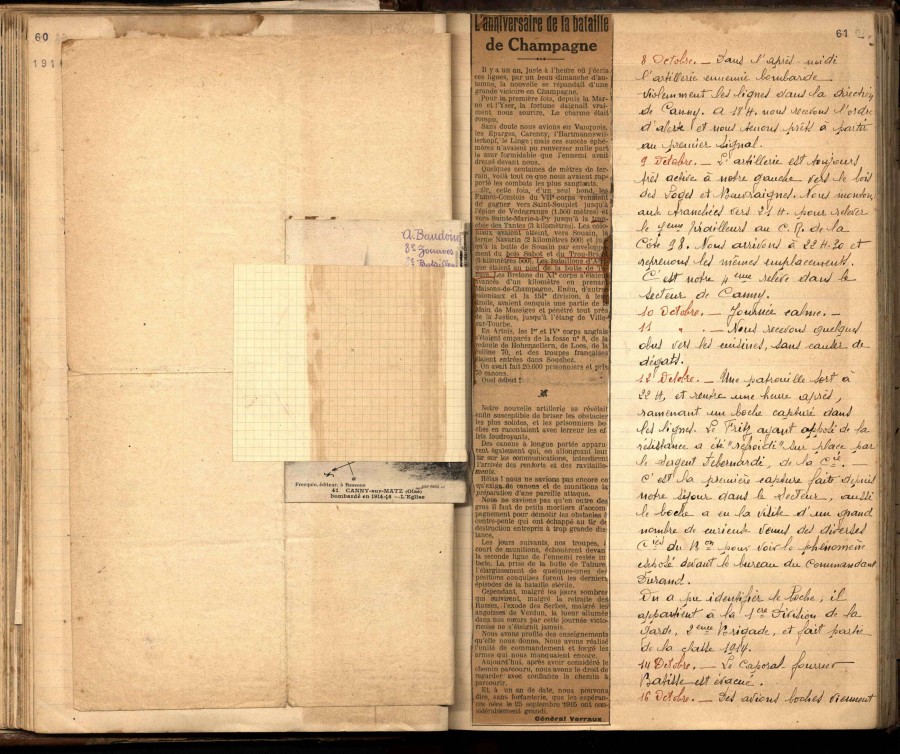 60
191
A. Baudoin
8e Zouaves
François, éditeur, à Ressons
41. CANNY-sur-MATZ (Oise)
bombardé en 1914-16 — L'Eglise
L'anniversaire de la bataille
de Champagne
Il y a un an, juste à l'heure où j'écris
ces lignes, par un beau dimanche d'au-
tomne, la nouvelle se répandait d'une
grande victoire en Champagne.
Pour la première fois, depuis la Mar-
ne et l'Yser, la fortune daignait vrai-
ment nous sourire. Le charme était
rompu.
Sans doute nous avions eu Vauquois,
les Eparges, Carency, l'Hartmannswil-
lerkopf, le Linge ; mais ces succès éphé-
mères n'avaient pu renverser nulle part
le mur formidable que l'ennemi avait
dressé devant nous.
Quelques centaines de mètres de ter-
rain, voilà tout ce que nous avaient rap-
porté les combats les plus sanglants.
Or, cette fois, d'un seul bond, les
Francs-Comtois du VIIe corps venaient
de gagner vers Saint-Souplet jusqu'à
l'épine de Vedegrange (1.500 mètres) et
vers Sainte-Marie-à-Py jusqu'à la tran-
chée des Tantes (3 kilomètres). Les colo-
niaux avaient atteint, vers Souain, la
ferme Navarin (2 kilomètres 500) et jus-
qu'à la butte de Souain par enveloppe-
ment du bois Sabot et du Trou-Bricot
(3 kilomètres 500). Les bataillons d'
que étaient au pied de la butte de
Les Bretons du XIe corps s'étaient
avancés d'un kilomètre en prenant
Maisons-de-Champagne. Enfin, d'autres
coloniaux et la 151e division, à leur
droite, avaient conquis une partie de la
Main de Massiges et pénétré tout près
de la Justice, jusqu'à l'étang de Ville-
sur-Tourbe.
En Artois, les Ier et IVe corps anglais
s'étaient emparés de la fosse n° 8, de la
redoute de Hohenzollern, de Loos, de la
colline 70, et des troupes françaises
étaient entrées dans Souchez.
On avait fait 20.000 prisonniers et pris
70 canons.
Quel début !
Notre nouvelle artillerie se révélait
enfin susceptible de briser les obstacles
les plus solides, et les prisonniers bo-
ches en racontaient avec terreur les ef-
fets foudroyants.
Des canons à longue portée apparu-
rent également qui, en allongeant leur
tir sur les communications, interdirent
l'arrivée des renforts et des ravitaille-
ments.
Hélas ! nous ne savions pas encore ce
qu'exige de canons et de munitions la
préparation d'une pareille attaque.
Nous ne savions pas qu'en outre des
gros il faut de petits mortiers d'accom-
pagnement pour démolir les obstacles à
contre-pente qui ont échappé au tir de
destruction entrepris à trop grande dis-
tance.
Les jours suivants, nos troupes, à
court de munitions, échouèrent devant
la seconde ligne de l'ennemi restée in-
tacte. La prise de la butte de Tahure,
l'élargissement de quelques-unes des
positions conquises furent les derniers
épisodes de la bataille stérile.
Cependant, malgré les jours sombres
qui suivirent, malgré la retraite des
Russes, l'exode des Serbes, malgré les
angoisses de Verdun, la lueur allumée
dans nos cœurs par cette journée victo-
rieuse ne s'éteignit jamais.
Nous avons profité des enseignements
qu'elle nous donna. Nous avons réalisé
l'unité de commandement et forgé les
armes qui nous manquaient encore.
Aujourd'hui, après avoir considéré le
chemin parcouru, nous avons le droit de
regarder avec confiance le chemin à
parcourir.
Et, à un an de date, nous pouvons
dire, sans forfanterie, que les espéran-
ces nées le 25 septembre 1915 ont con-
sidérablement grandi.
Général Verraux
61
8 Octobre. — Dans l'après-midi
l'artillerie ennemie bombarde
violemment les lignes dans la direction
de Canny. A 18 H. nous recevons l'ordre
d'alerte et nous tenons prêts à partir
au premier signal.
9 Octobre. — L'artillerie est toujours
très active à notre gauche vers le bois
des Loges et Beuvraignes. Nous montons
aux tranchées vers 21 H. pour relever
le 4ème tirailleurs au C. R. de la
Côte 98. Nous arrivons à 22 H.20 et
reprenons les mêmes emplacements.
C'est notre 4ème relève dans le
secteur de Canny.
10 Octobre. — Journée calme. —
11 " . — Nous recevons quelques
obus vers les cuisines, sans causer de
dégats.
12 Octobre. — Une patrouille sort à
22 H, et rentre une heure après,
ramenant un boche capturé dans
les lignes. Le Fritz ayant opposé de la
résistance a été "refroidi" sur place par
le Sergent Tebernardi, de la Cie. —
C'est la première capture faite depuis
notre séjour dans le secteur, aussi
le boche a eu la visite d'un grand
nombre de curieux venus des diverses
Cies du Bon pour voir le phénomène
exposé devant le bureau du Commandant
Durand.
On a pu identifier le boche ; il
appartient à la 1ère Division de la
Garde, 2ème Brigade, et fait partie
de la classe 1914.
14 Octobre. — Le Caporal fourrier
Batisse est évacué.
16 Octobre. — Des avions boches viennent